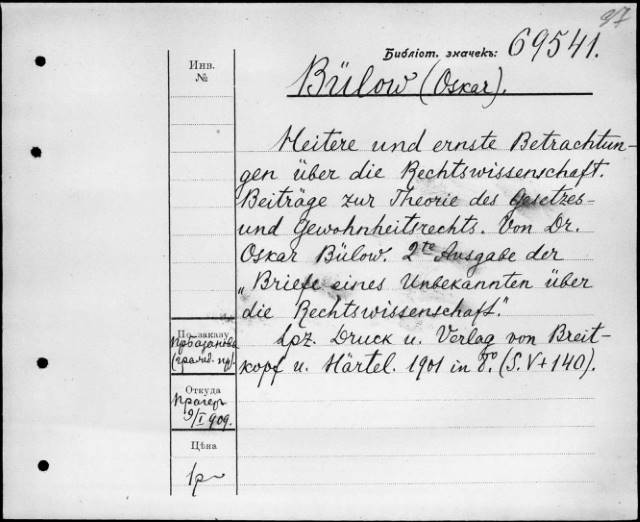 97
Библіот. значекъ: 69541.
Инв.
№
Bülow (Oskar).
Heitere und ernste Betrachtun-
gen über die Rechtswissenschaft.
Beiträge zur Theorie des Gesetzes-
und Gewohnheitsrechts. Von Dr.
Oskar Bülow. 2te Ausgabe der
„Briefe eines Unbekannten über
die Rechtswissenschaft."
Lpz. Druck u. Verlag von Breit-
kopf u. Härtel. 1901 in 8º. (S. V+140).
По заказу
Откуда
Прагеръ
9/I 909.
Цѣна
1р